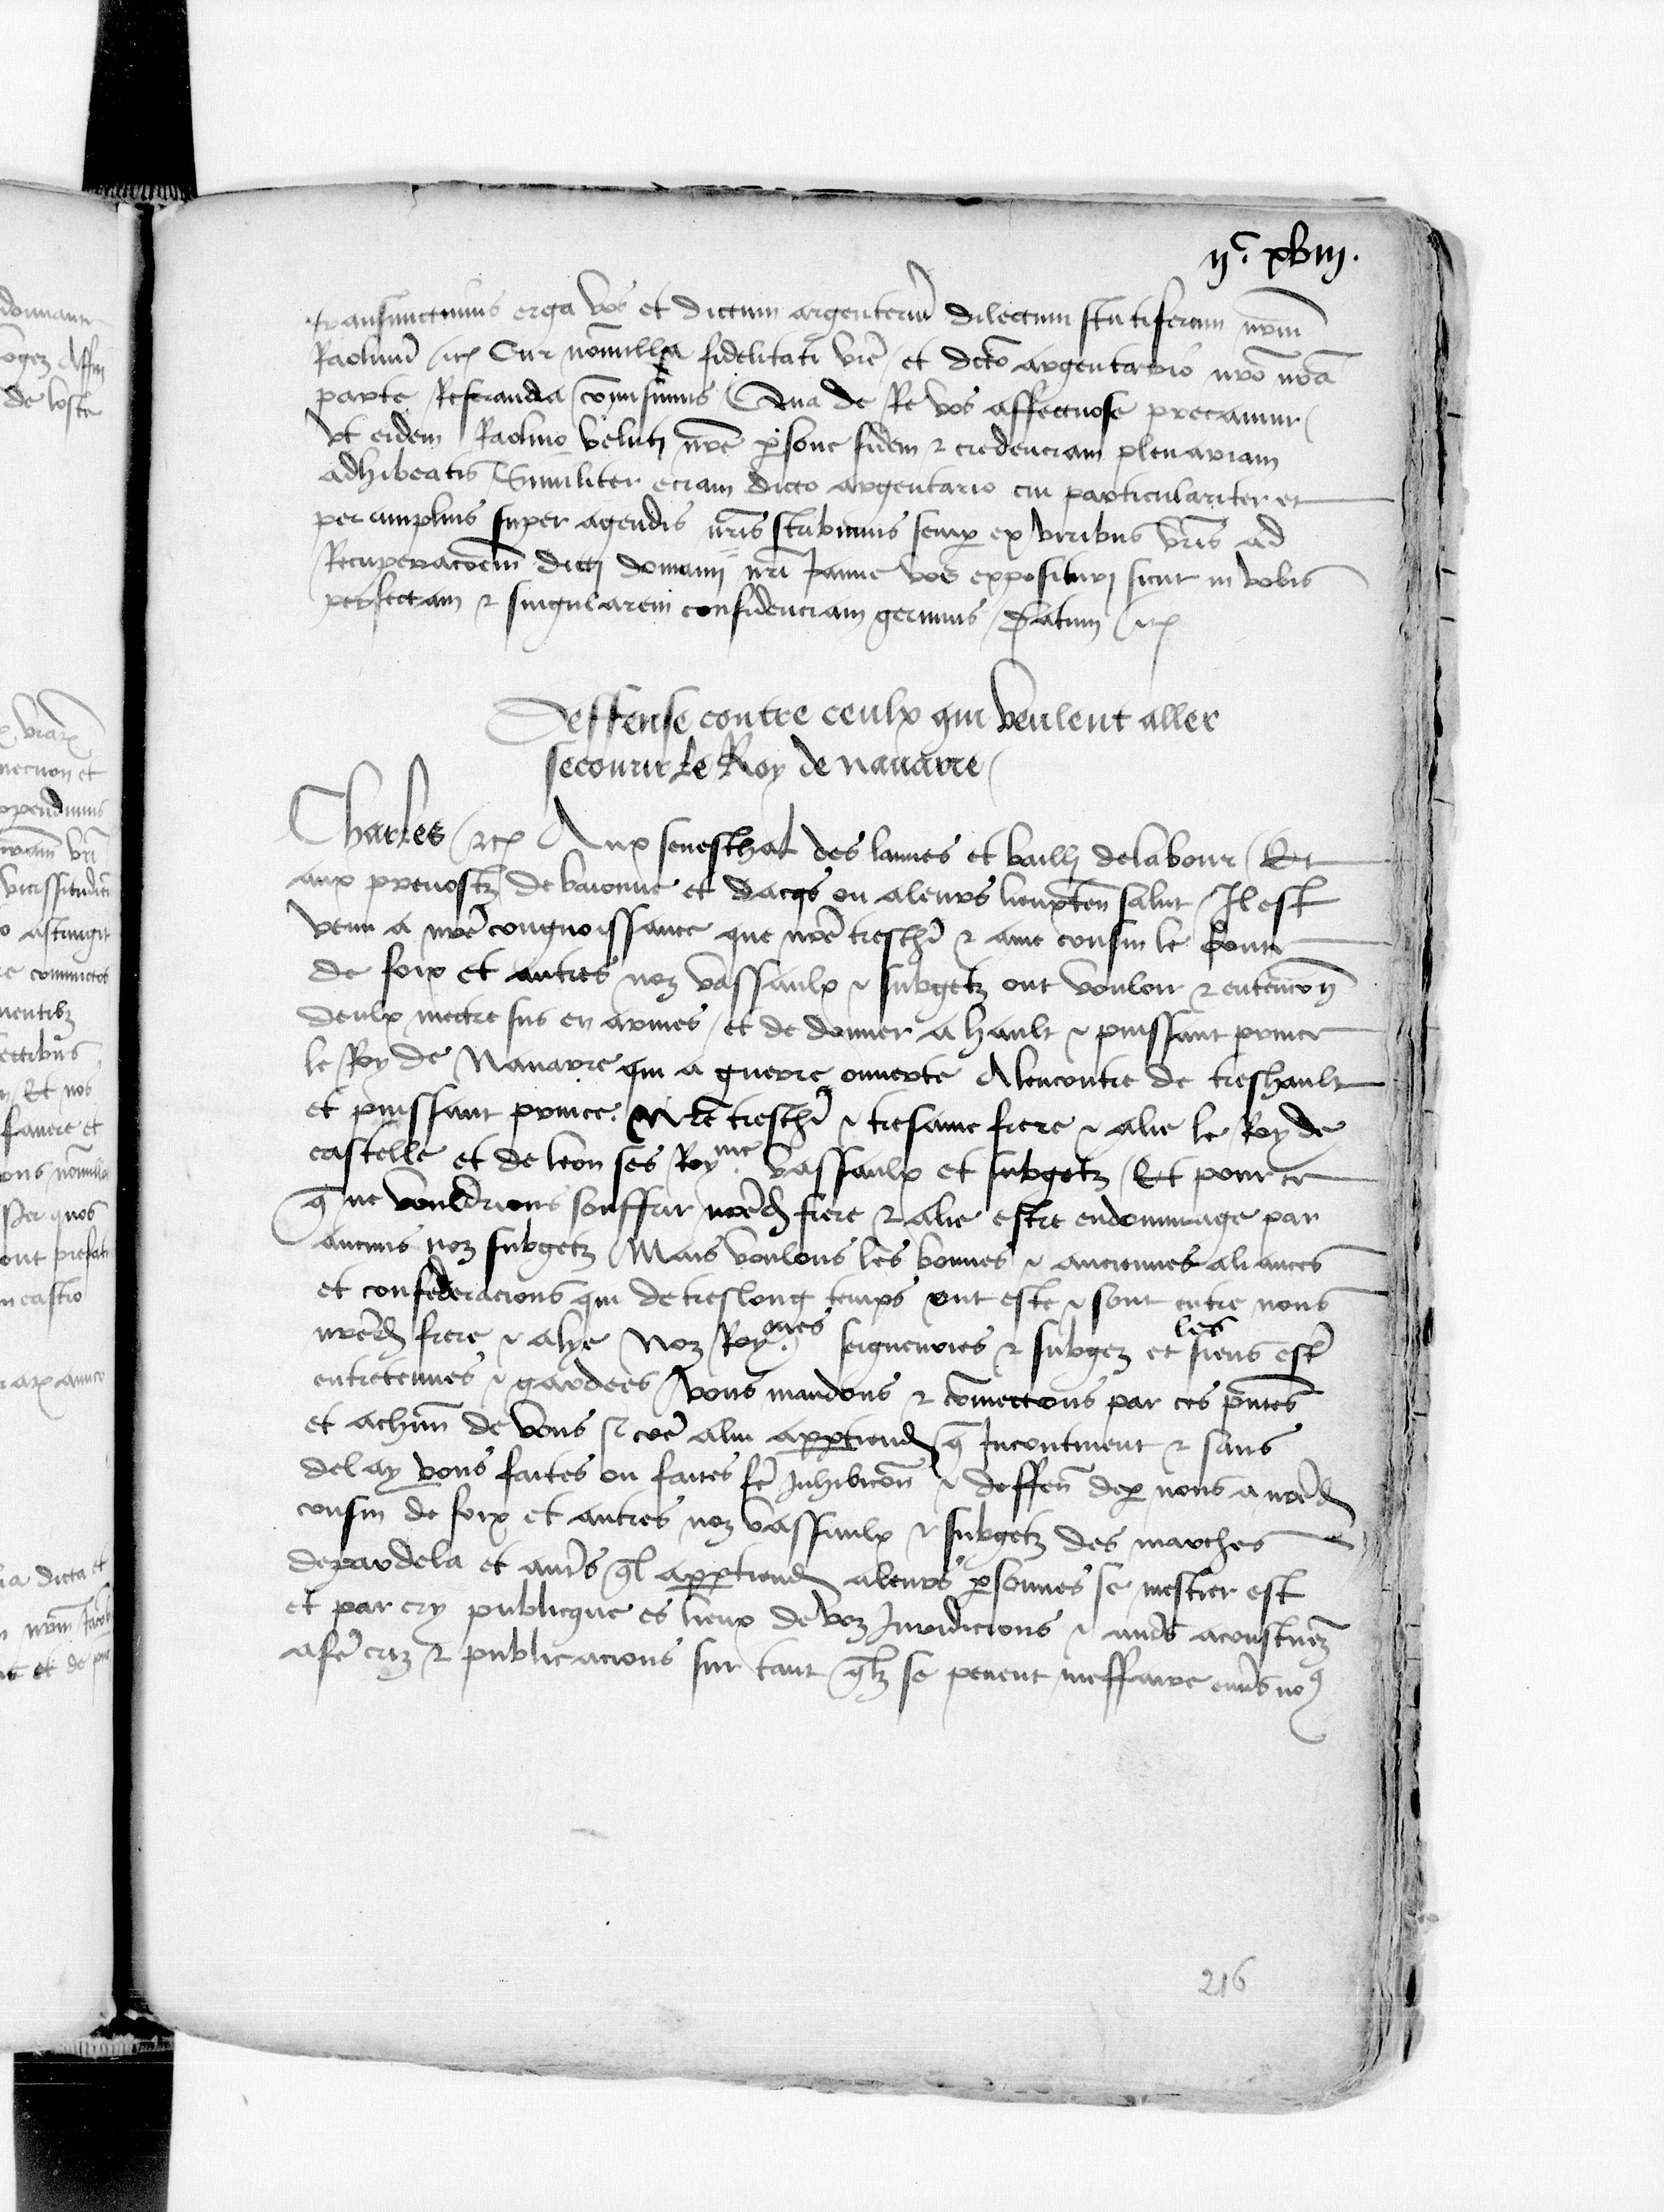 ijc xviij.
transmittimus erga vos et dictum argenterium dilectum scutiferum nrm
Raolinu etc Cui nonnulla fidelitati vre et dcto argentario nro nra
parte Referenda comisimus Qua de Re vos affectuose precamur
vt eidem Raolino veluti nre persone fidem et credenciam plenariam
adhibeatis Similiter eciam dicto argentario cui particulariter et
per amplius super agendis nris scribimus semp ex viribus vris ad
Recuperacoem dicti domanij nri Janue vos exposituri sicut in vobis
perfectam et singularem confidenciam gerimus Datum etc
Deffense contre ceulx qui veulent aller
secourir le Roy de nauarre
Charles etc Aux seneschal des lannes et bailly de labour Et
aux preuostz de baionne et dacqs ou a leurs lieuxten salut Il est
venu a nre congnoissance que nre treschr et ame cousin le conte
de foix et autres noz vassaulx et subgetz ont vouloir et entencion
deulx mectre sus en armes et de donner a hault et puissant prince
le Roy de Nauarre qui a guerre ouuerte Alencontre de treshault
et puissant prince Nre treschr et tresame frere et alie le Roy de
castelle et de leon ses Royme vassaulx et subgetz Et pour ce
q ne vouldrions souffrir nred frere et alie estre endommage par
aucuns noz subgetz Mais voulons les bonnes et anciennes aliances
et confederacions qui de treslong temps ont este et sont entre nous
nred frere et alye Noz Royomes seigneuries et subgez et les siens estre
entretenues et gardees vous mandons et comectons par ces pntes
et a chun de vous si come a lui apptiendra q Incontinent et sans
delay vous faites ou faites fe Inhibicon et deffen de p nous a nred
cousin de foix et autres noz vassaulx et subgetz des marches
de par dela et autrs ql apptiendra a leurs psonnes se mestier est
et par cry publicque es lieux de voz Juridicions et autrs acoustumez
a fe criz et publicacions sur tant qlz se peuent meffaire enurs nos
216